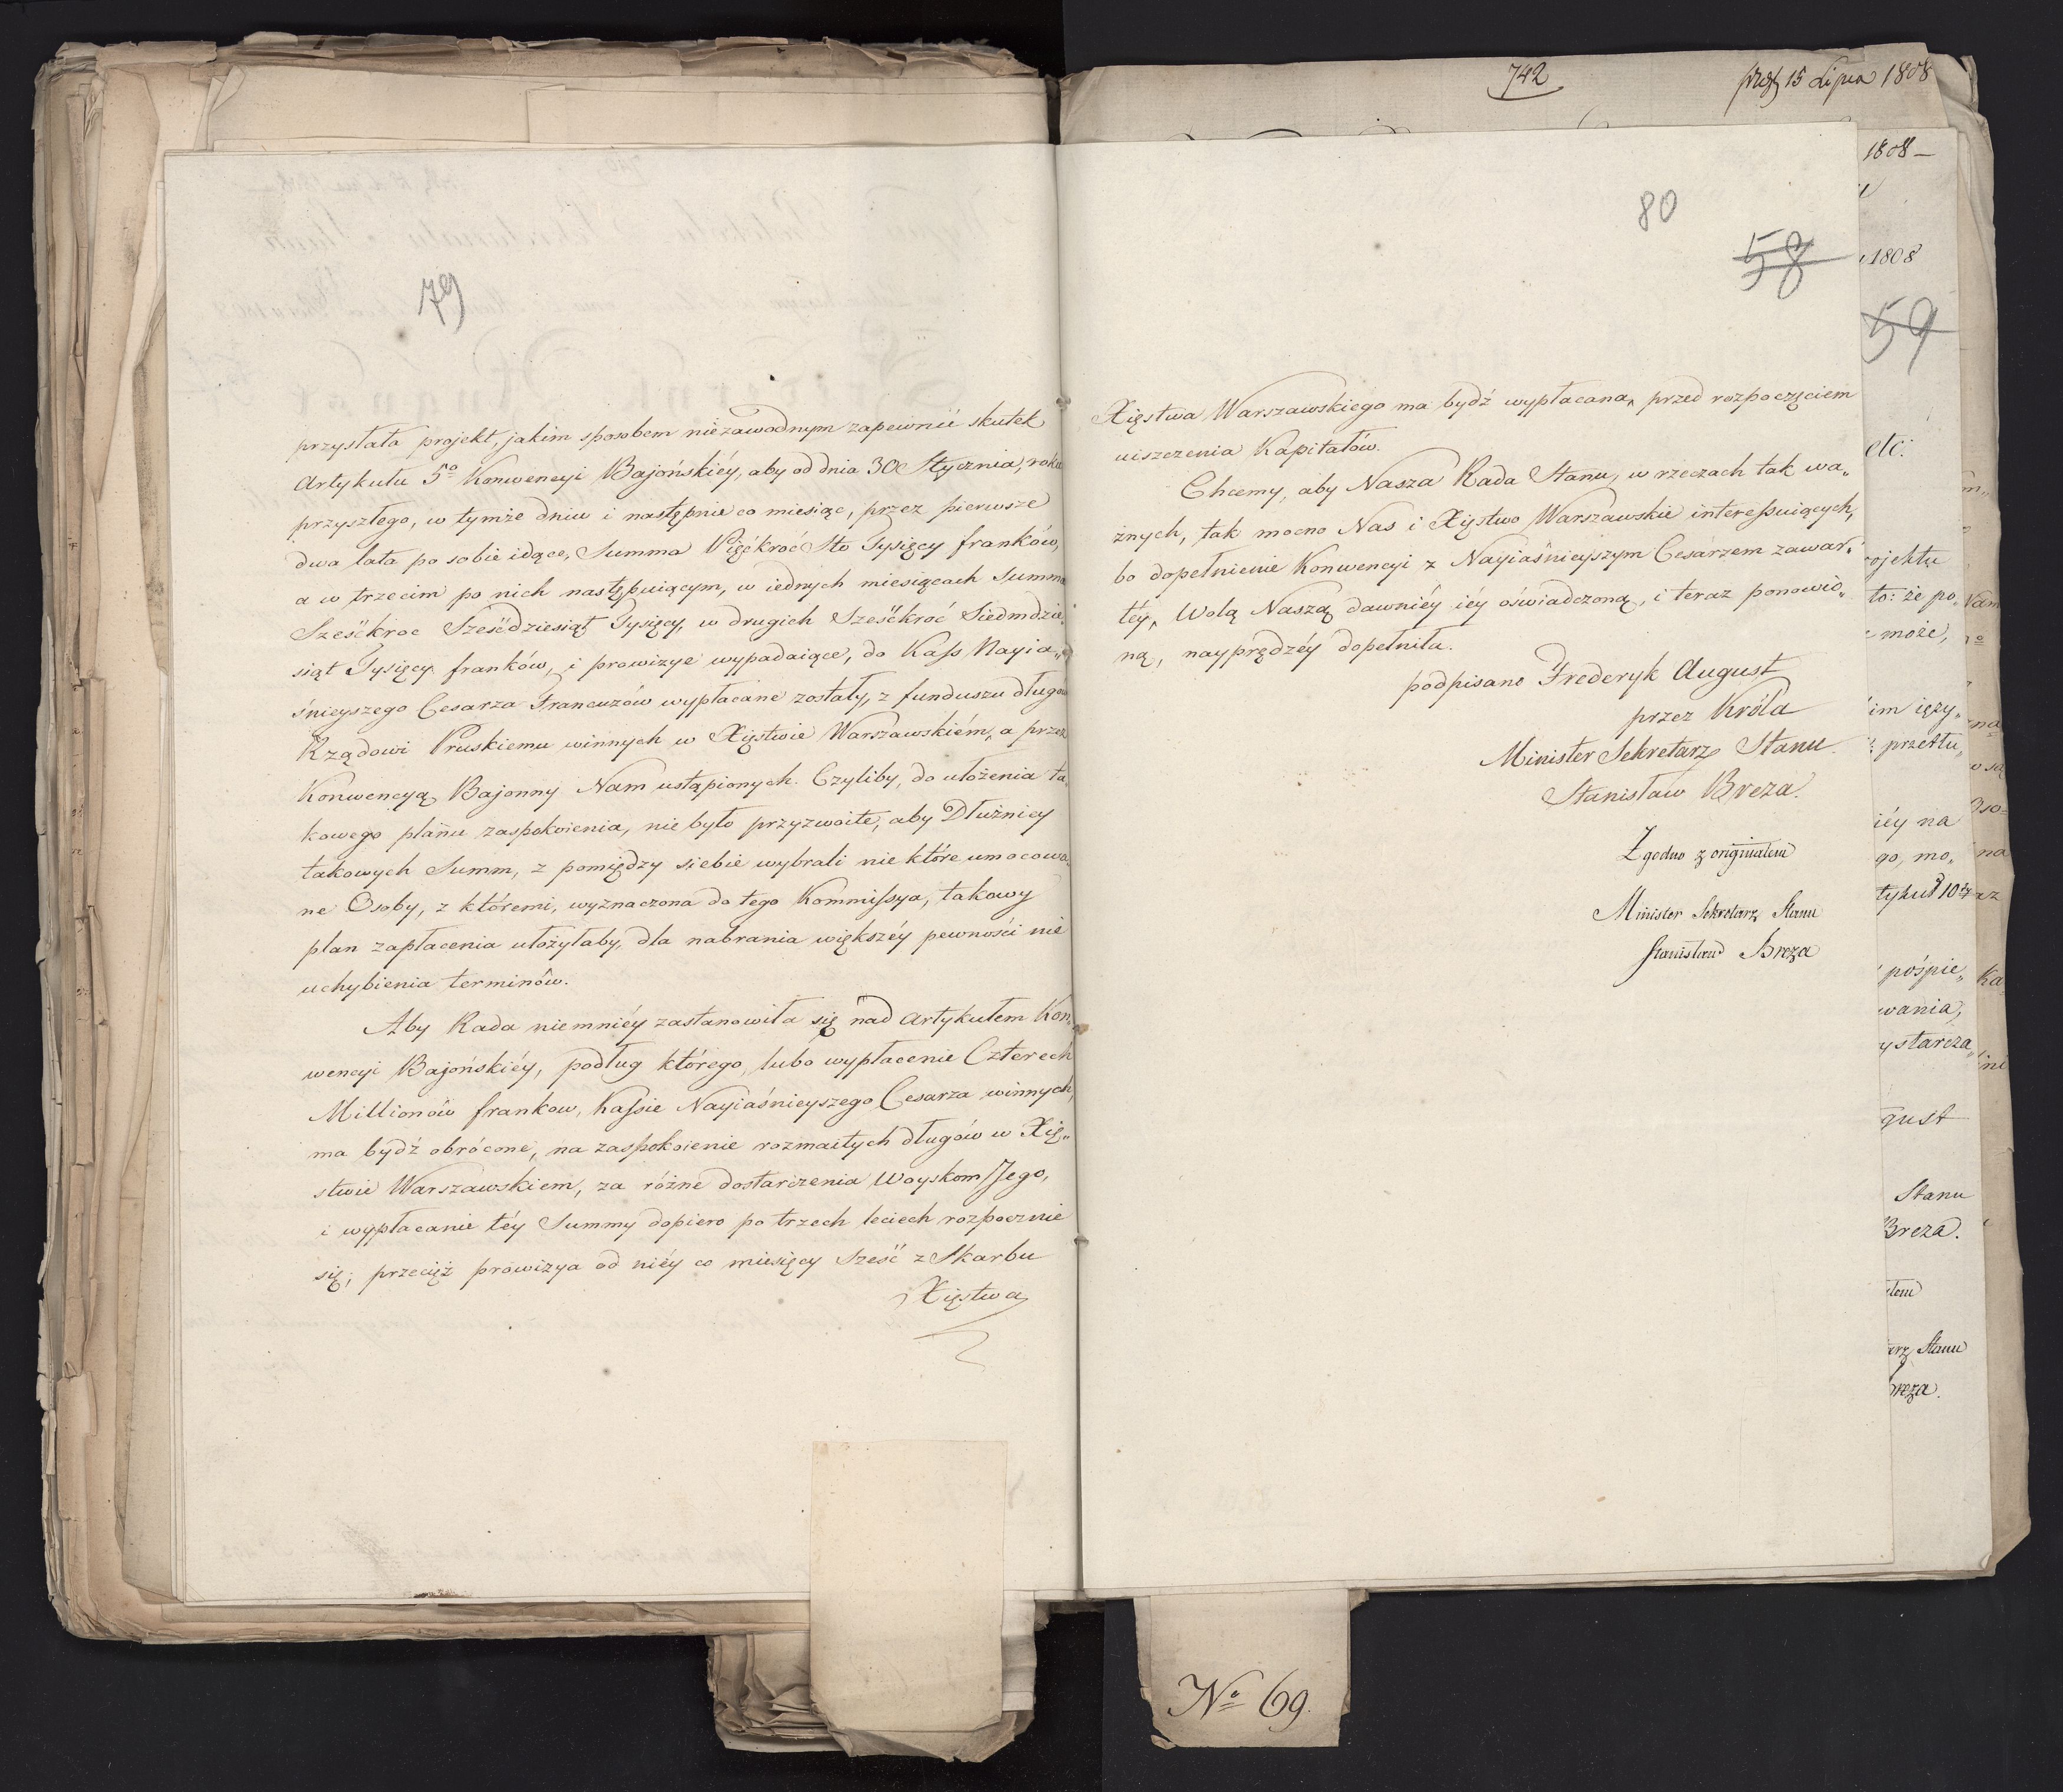 79
przysłała projekt, jakim sposobem niezawodnym zapewnić skutek
Artykułu 5º Konwencyi Bajońskiéy, aby od dnia 30 Stycznia, roku
przyszłego, w tymże dniu i następnie co miesiąc, przez pierwsze
dwa lata po sobie idące, Summa Pięćkroć Sto Tysięcy franków,
a w trzecim po nich następuiącym, w iednych miesiącach Summa
Sześćkroć Sześćdziesiąt Tysięcy, w drugich Sześćkroć Siedmdzie„
siąt Tysięcy franków, i prowizye wypadaiące, do Kass Nayia„
śnieyszego Cesarza Francuzów wypłacane zostały, z funduszu długów
Rządowi Pruskiemu winnych w Xięstwie Warszawskiém, a przez
Konwencyą Bajonny Nam ustąpionych. Czyliby, do ułożenia ta„
kowego planu zaspokoienia, nie było przyzwoite, aby Dłużnicy
takowych Summ, z pomiędzy siebie wybrali nie które umocowa„
ne Osoby, z któremi, wyznaczona do tego Kommissya, takowy
plan zapłacenia ułożyłaby, dla nabrania większéy pewności nie
uchybienia terminów.
Aby Rada niemniéy zastanowiła się nad Artykułem Kon„
wencyi Bajońskiéy, podług którego, lubo wypłacenie Czterech
Millionów frankow, Kassie Nayiaśnieyszego Cesarza winnych,
ma bydź obrócone, na zaspokoienie rozmaitych długów w Xię„
stwie Warszawskiem, za różne dostarczenia Woyskom Jego,
i wypłacanie téy Summy dopiero po trzech leciech rozpocznie
się; przecięż prowizya od niéy co miesięcy Sześć z Skarbu
Xięstwa
742
prez 15 Lipca 1808
80
58
Xięstwa Warszawskiego ma bydź wypłacana, przed rozpoczęciem
uiszczenia Kapitałów.
Chcemy, aby Nasza Rada Stanu, w rzeczach tak wa„
żnych, tak mocno Nas i Xięstwo Warszawskie interessuiących,
bo dopełnienie Konwencyi z Nayiaśnieyszym Cesarzem zawar„
téy, Wolą Naszą dawniéy iéy oświadczoną, i teraz ponowio„
ną, nayprędzéy dopełniła.
podpisano Frederyk August
przez Króla
Minister Sekretarz Stanu
Stanisław Breza.
Zgodno z originałem
Minister Sekretarz Stanu
Stanisław Breza
1808 –
1808
59
etc:
ojektu
to: że po„
może,
im ięzy„
przetłu„
iéy na
go, mo„
pośpie„
wania,
ystarcza„
gust
Stanu
Breza.
Stanu
Nº 69.